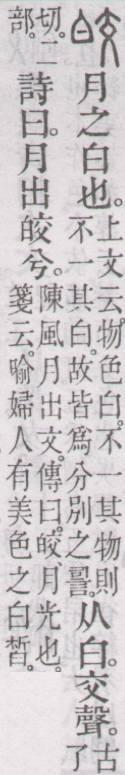 皎
月之白也。
上文云物色白。不一其物則
不一其白。故皆爲分別之䛐。
从白。交聲。
古
了
切。二
部。
詩曰。月出皎兮。
陳風月出文。傳曰。皎、月光也。
箋云。喻婦人有美色之白晳。